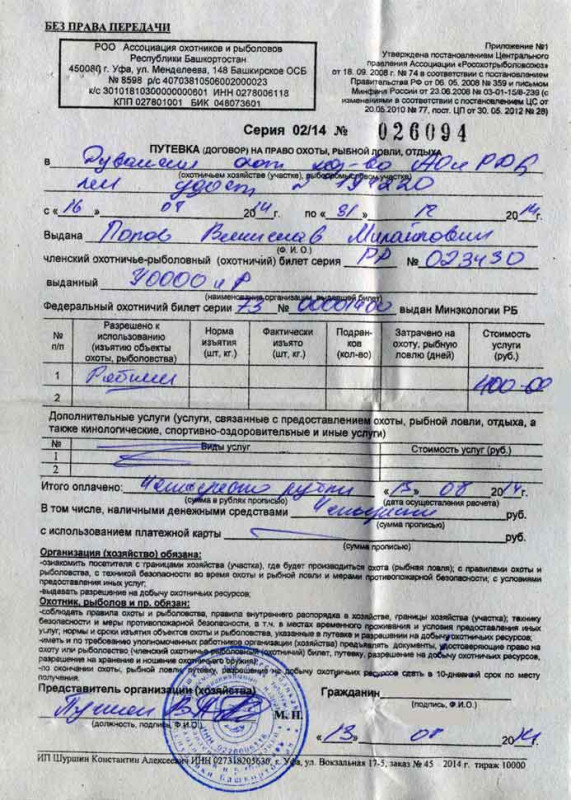 БЕЗ ПРАВА ПЕРЕДАЧИ
РОО Ассоциация охотников и рыболовов
Республики Башкортостан
450080 г. Уфа, ул. Менделеева, 148 Башкирское ОСБ
№ 8598 р/с 40703810506002000023
к/с 30101810300000000601 ИНН 0278006118
КПП 027801001 БИК 048073601
Приложение №1
Утверждена постановлением Центрального
правления Ассоциации «Росохотрыболовсоюз»
от 18. 09. 2008 г. № 74 в соответствии с постановлением
Правительства РФ от 06. 05. 2008 № 359 и письмом
Минфина России от 23.06.2008 № 03-01-15/8-239 (с
изменениями в соответствии с постановлением ЦС от
20.05.2010 № 77, пост. ЦП от 30. 05. 2012 № 28)
Серия 02/14 № 026094
ПУТЕВКА (ДОГОВОР) НА ПРАВО ОХОТЫ, РЫБНОЙ ЛОВЛИ, ОТДЫХА
в Дуванское охот хоз-во АОиР РБ
(охотничьем хозяйстве (участке), рыбопромысловом участке)
удост № 197220
с « 16 » 08 2014 г. по « 31 » 12 2014 г.
Выдана Попов Вячеслав Михайлович
(Ф. И. О.)
членский охотничье-рыболовный (охотничий) билет серия РР № 023430
выданный УОООиР
(наименование организации, выдавшей билет)
Федеральный охотничий билет серии 73 № 00001400 выдан Минэкологии РБ
№ п/п Разрешено к использованию (изъятию объекты охоты, рыболовства) Норма изъятия (шт, кг.) Фактически изъято (шт, кг.) Подранков (кол-во) Затрачено на охоту, рыбную ловлю (дней) Стоимость услуги (руб.)
1 Рябчик 400-00
2
Дополнительные услуги (услуги, связанные с предоставлением охоты, рыбной ловли, отдыха, а
также кинологические, спортивно-оздоровительные и иные услуги)
№ Виды услуг Стоимость услуг (руб.)
1
2
Итого оплачено: Четыреста рублей « 13 » 08 2014 г.
(сумма в рублях прописью) (дата осуществления расчета)
В том числе, наличными денежными средствами Четыреста руб.
(сумма прописью)
с использованием платежной карты руб.
(сумма прописью)
Организация (хозяйство) обязана:
-ознакомить посетителя с границами хозяйства (участка), где будет производиться охота (рыбная ловля); с правилами охоты и
рыболовства, с техникой безопасности во время охоты и рыбной ловли и мерами противопожарной безопасности; с условиями
предоставления иных услуг;
-выдавать разрешение на добычу охотничьих ресурсов;
Охотник, рыболов и пр. обязан:
-соблюдать правила охоты и рыболовства, правила внутреннего распорядка в хозяйстве, границы хозяйства (участка); технику
безопасности и меры противопожарной безопасности, в т.ч. в местах временного проживания и условия предоставления иных
услуг; нормы и сроки изъятия объектов охоты и рыболовства, указанные в путевке и разрешении на добычу охотничьих ресурсов;
-иметь и по требованию уполномоченных работников организации (хозяйства) предъявлять документы, удостоверяющие право на
охоту или рыболовство (членский охотничье-рыболовный (охотничий) билет, путевку, разрешение на добычу охотничьих ресурсов,
разрешение на хранение и ношение охотничьего оружия);
-по окончании охоты, рыбной ловли, путевку, разрешение на добычу охотничьих ресурсов сдать в 10-дневней срок по месту
получения.
Представитель организации (хозяйства) Гражданин
(подпись, Ф.И.О.)
М. П.
(должность, подпись, Ф.И.О.)
« 13 » 08 2014
ИП Шуршин Константин Алексеевич ИНН 027318205630, г. Уфа, ул. Вокзальная 17-5, заказ № 45 2014 г. тираж 10000